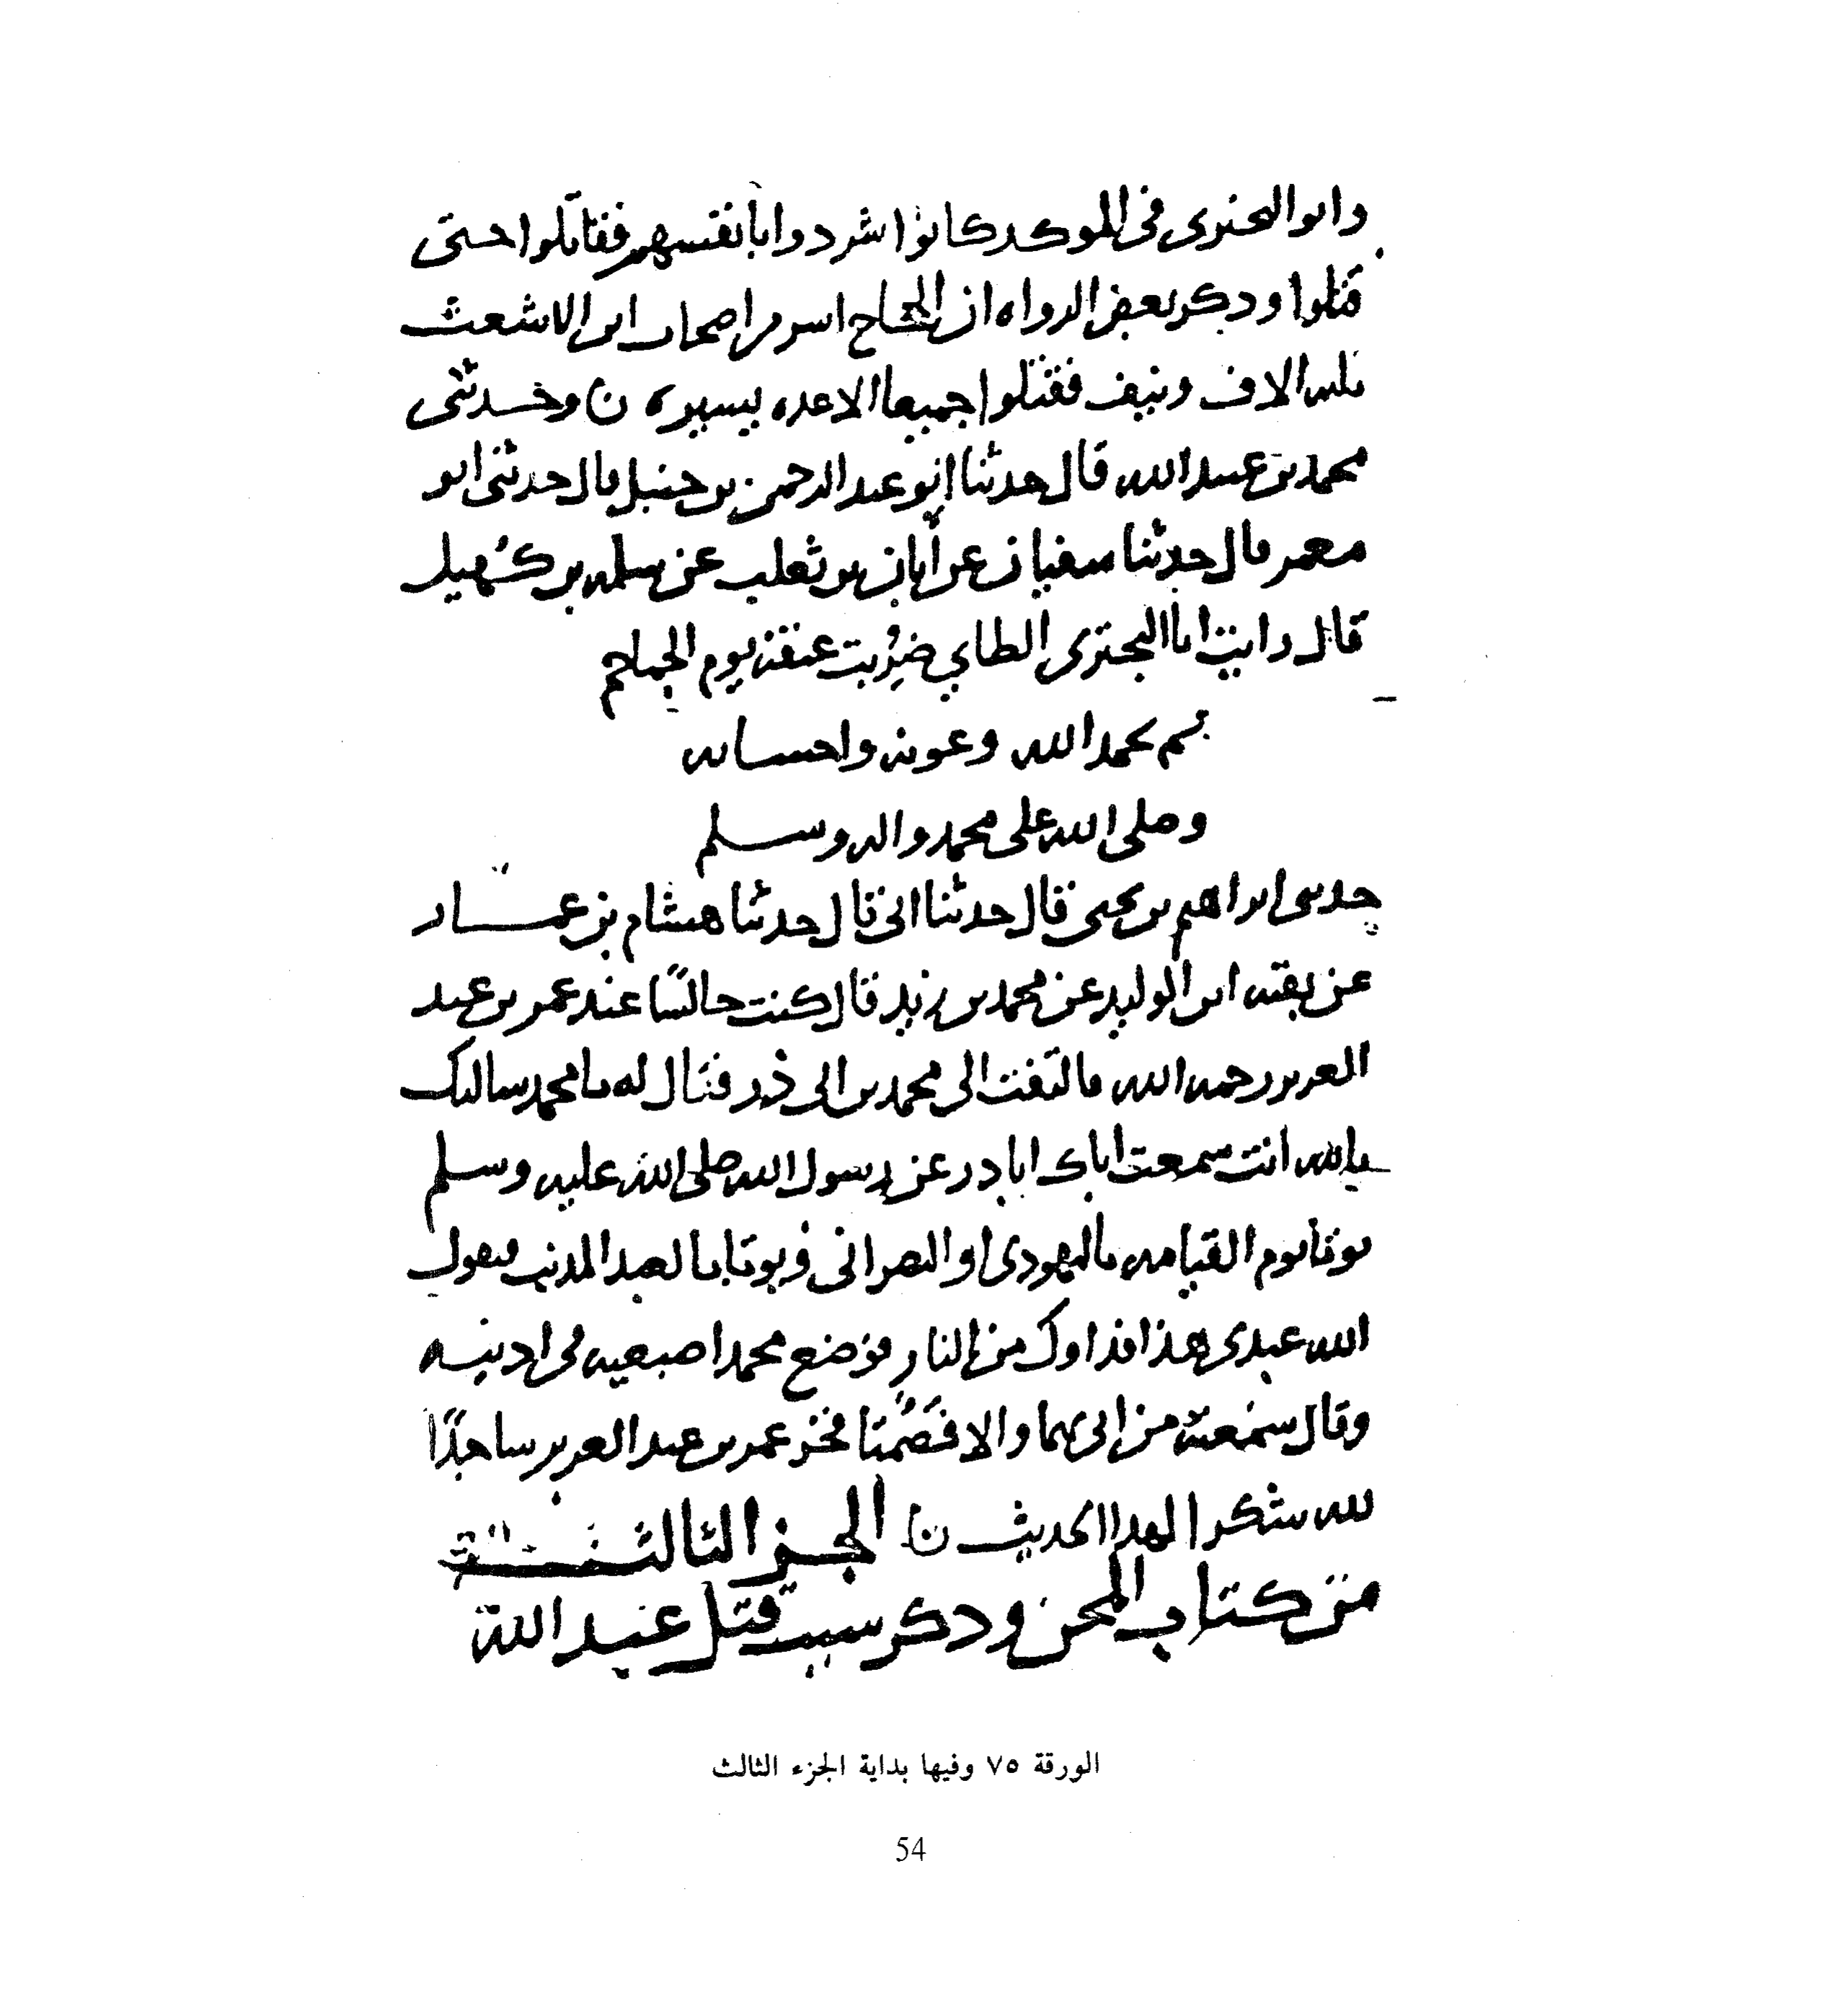 وابو البحتري في الموكد كانوا شردوا بأنفسهم فقاتلوا حتى
قتلوا وذكر بعض الرواه ان الحجاج اسر من اصحاب ابن الاشعث
ثلثه الاف ونيف فقتلوا جميعا الا عده يسيره ن وحدثني
محمد بن عبد الله قال حدثنا ابو عبد الرحمن بن حنبل قال حدثني ابو
معمر قال حدثنا سفيان عن أبان بن ثعلب عن سلمه بن كهيل
قال رايت ابا البحتري الطاي ضربت عنقه يوم الجماجم
تم بحمد الله وعونه واحسانه
وصلى الله على محمد واله وسلم
حدثني ابراهيم بن يحيى قال حدثنا ابي قال حدثنا هشام بن عمار
عن بقيه ابن الوليد عن محمد بن زيد قال كنت جالسًا عند عمر بن عبد
العزيز رحمه الله فالتفت الى محمد بن ابي ذر فقال له يا محمد سالتك
بالله أنت سمعت اباك ابا ذر عن رسول الله صلى الله عليه وسلم
يوتا يوم القيامه باليهودي او النصراني ويوتا بالعبد المذنب فيقول
الله عبدي هذا فداوك من النار فوضع محمد اصبعيه في اذنيه
وقال سمعته من ابي بهما والا فصُمّتا فخر عمر بن عبد العزيز ساجدًا
لله شكرا لهذا الحديث ن الجز الثالث
من كتاب المحن وذكر سبب قتل عبد الله
الورقة ٧٥ وفيها بداية الجزء الثالث
54